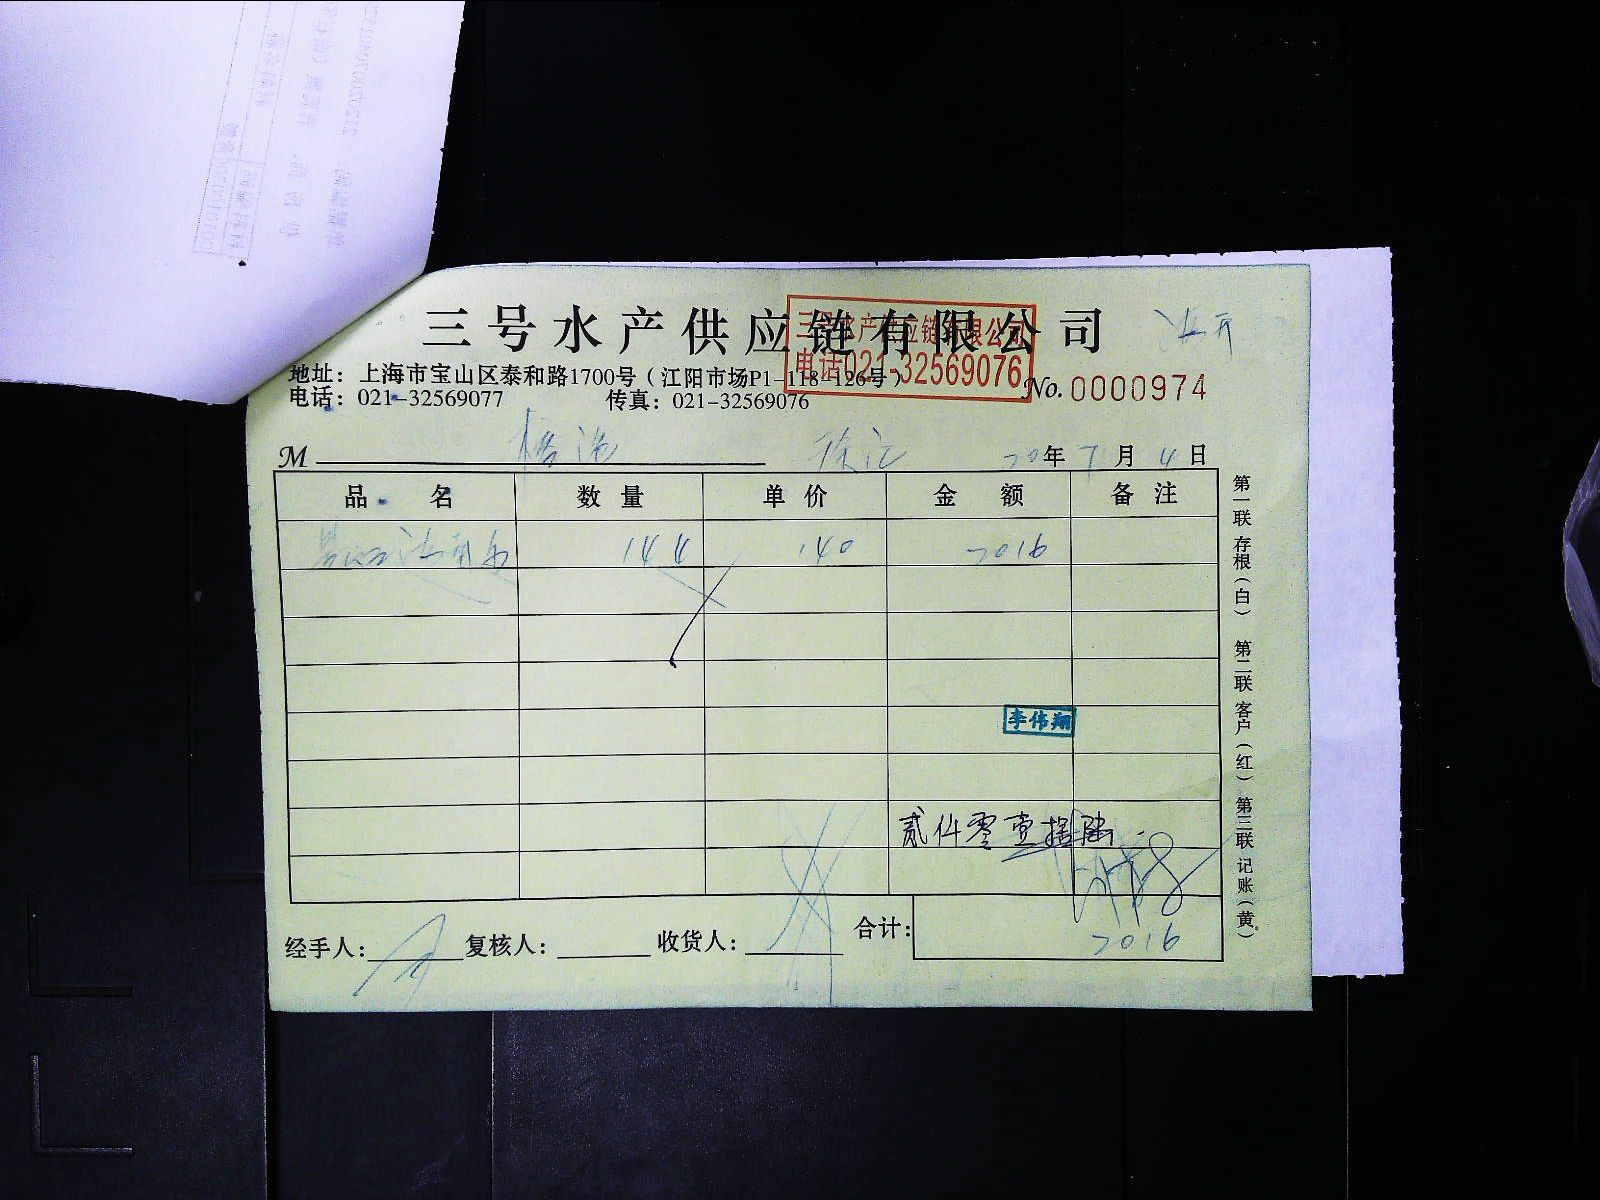 三号水产供应链有限公司
三号水产供应链有限公司
电话021-32569076
地址：上海市宝山区泰和路1700号（江阳市场P1-118-126号）
No. 0000974
电话：021-32569077 传真：021-32569076
M 徐汇 20年7月4日
品名 数量 单价 金额 备注
144 140 2016
李伟翔
贰仟零壹拾陆
经手人： 复核人： 收货人： 合计： 2016
第一联 存根（白） 第二联 客户（红） 第三联 记账（黄）